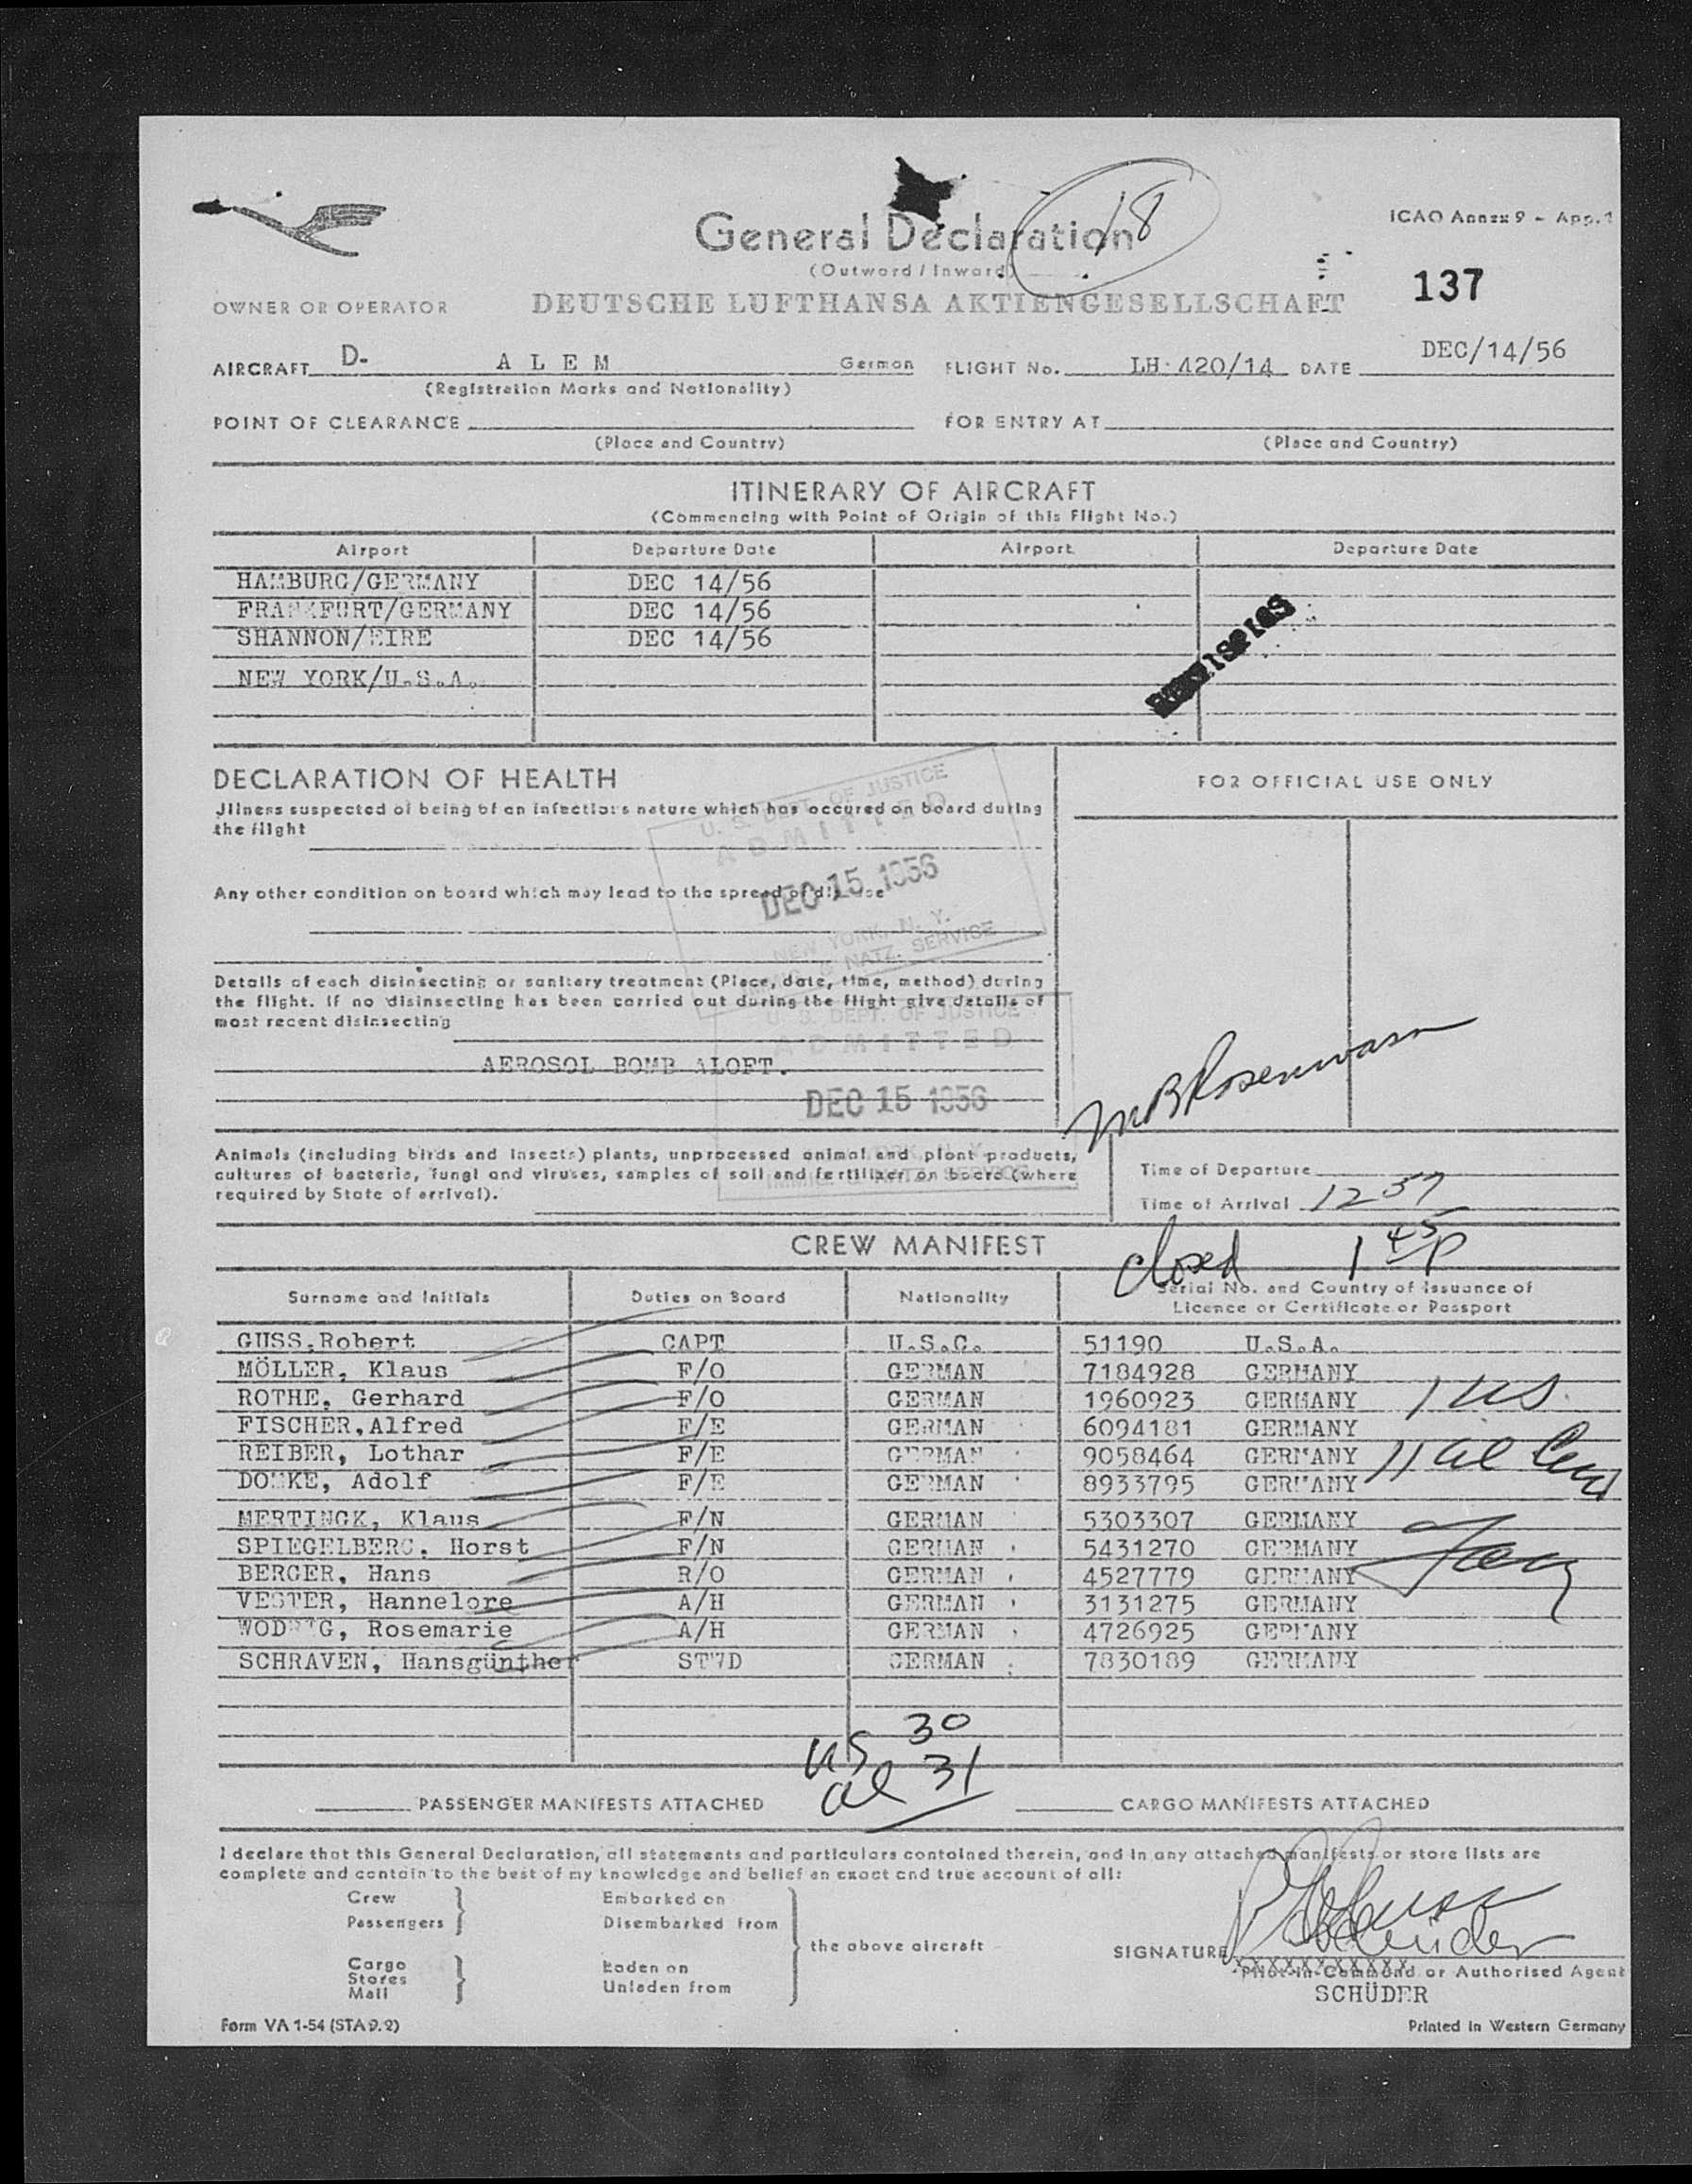 General Declaration
18
ICAO Annex 9 - App. 1
(Outward / Inward)
137
OWNER OR OPERATOR DEUTSCHE LUFTHANSA AKTIENGESELLSCHAFT
AIRCRAFT D- A L E M German FLIGHT No. LH 420/14 DATE DEC/14/56
(Registration Marks and Nationality)
POINT OF CLEARANCE FOR ENTRY AT
(Place and Country) (Place and Country)
ITINERARY OF AIRCRAFT
(Commencing with Point of Origin of this Flight No.)
Airport Departure Date Airport Departure Date
HAMBURG/GERMANY DEC 14/56
FRANKFURT/GERMANY DEC 14/56
SHANNON/EIRE DEC 14/56
NEW YORK/U.S.A.
DECLARATION OF HEALTH
FOR OFFICIAL USE ONLY
Jllness suspected of being of an infectious nature which has occured on board during
the flight
U. S. DEPT. OF JUSTICE
ADMITTED
DEC 15 1956
NEW YORK, N. Y.
IMMIG. & NATZ. SERVICE
Any other condition on board which may lead to the spread of disease
Details of each disinsecting or sanitary treatment (Place, date, time, method) during
the flight. If no disinsecting has been carried out during the flight give details of
most recent disinsecting
AEROSOL BOMB ALOFT.
U. S. DEPT. OF JUSTICE
ADMITTED
DEC 15 1956
Animals (including birds and insects) plants, unprocessed animal and plant products,
cultures of bacteria, fungi and viruses, samples of soil and fertilizer on board (where
required by State of arrival).
Time of Departure
Time of Arrival 1237
CREW MANIFEST
closed 1 45 P
Surname and Initials Duties on Board Nationality Serial No. and Country of Issuance of
Licence or Certificate or Passport
GUSS, Robert CAPT U.S.C. 51190 U.S.A.
MÖLLER, Klaus F/O GERMAN 7184928 GERMANY
ROTHE, Gerhard F/O GERMAN 1960923 GERMANY 1 US
FISCHER, Alfred F/E GERMAN 6094181 GERMANY
REIBER, Lothar F/E GERMAN 9058464 GERMANY 11 al
DOMKE, Adolf F/E GERMAN 8933795 GERMANY
MERTINCK, Klaus F/N GERMAN 5303307 GERMANY
SPIEGELBERG, Horst F/N GERMAN 5431270 GERMANY
BERGER, Hans R/O GERMAN 4527779 GERMANY
VESTER, Hannelore A/H GERMAN 3131275 GERMANY
Rosemarie A/H GERMAN 4726925 GERMANY
SCHRAVEN, Hansgünther STWD GERMAN 7830189 GERMANY
us 30
al 31
PASSENGER MANIFESTS ATTACHED CARGO MANIFESTS ATTACHED
I declare that this General Declaration, all statements and particulars contained therein, and in any attached manifests or store lists are
complete and contain to the best of my knowledge and belief an exact and true account of all:
Crew Embarked on
Passengers Disembarked from
the above aircraft
Cargo Loaden on
Stores
Mail Unladen from
SIGNATURE
Pilot-in-Command or Authorised Agent
SCHÜDER
Form VA 1-54 (STA 9.2) Printed in Western Germany